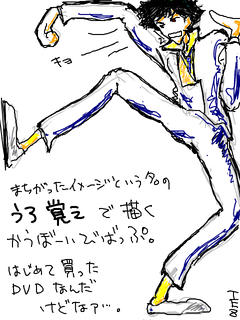 キョ
まちがったイメージというタ。の
うろ覚えで描く
かうぼーいびばっぷ。
はじめて買った
DVDなんだ
けどなァ…。